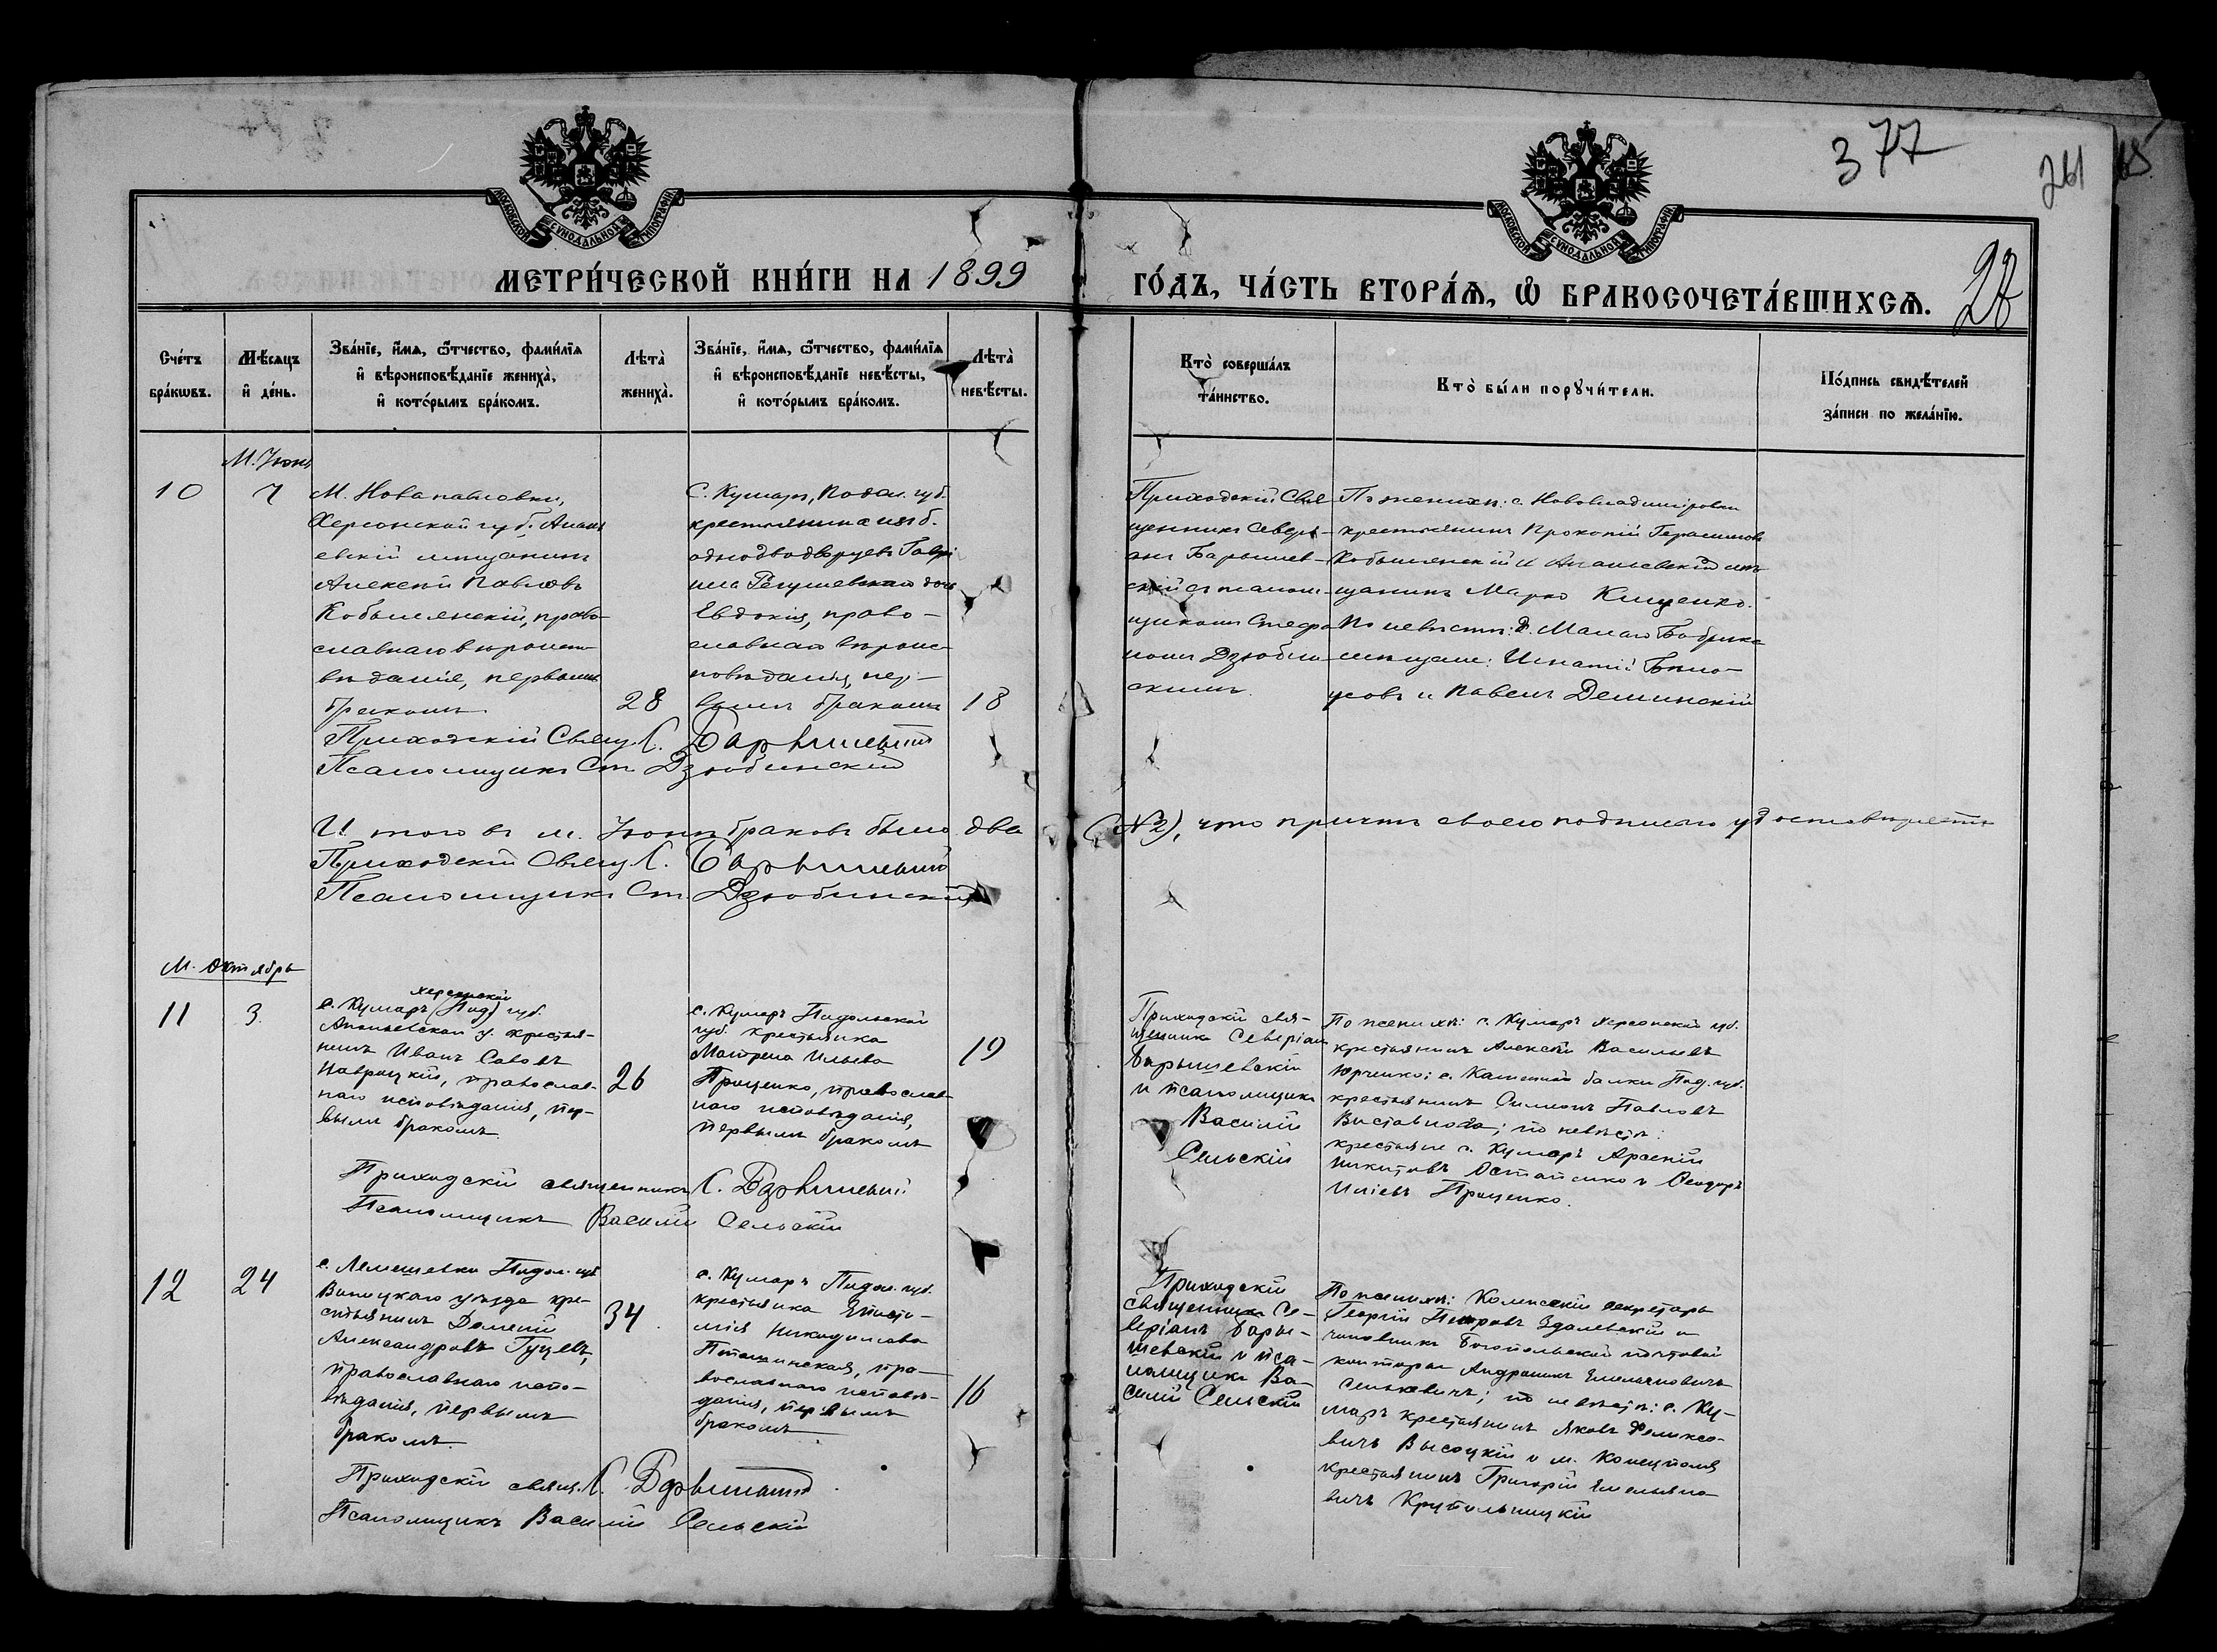 377
261
МОСКОВСКОЙ СѴНОДАЛЬНОЙ ТИПОГРАФІИ
МОСКОВСКОЙ СѴНОДАЛЬНОЙ ТИПОГРАФІИ
МЕТРИ́ЧЕСКОЙ КНИ́ГИ НА 1899
ГО́ДЪ, ЧА́СТЬ ВТОРА́Ѧ, Ѽ БРАКОСОЧЕТА́ВШИХСѦ.
Сче́тъ бра́кѡвъ.
Мѣ́сяцъ и҆ де́нь.
Зва́нїе, и҆́мѧ, ѻ҆́тчество, фами́лїѧ
и҆ вѣроисповѣ́данїе жениха̀,
и҆ кото́рымъ бра́комъ.
Лѣта̀ жениха̀.
Зва́нїе, и҆́мѧ, ѻ҆́тчество, фами́лїѧ
и҆ вѣроисповѣ́данїе невѣ́сты,
и҆ кото́рымъ бра́комъ.
Лѣта̀ невѣ́сты.
Кто̀ соверша́лъ
та́инство.
Кто̀ бы́ли порꙋчи́тели.
По́дпись свидѣ́телей
за́писи по жела́нїю.
М. Іюнь
10
7
М. Новопавловки,
Херсонской губ. Анань
евскій мѣщанинъ
Алексѣй Павловъ
Кобылянскій, право-
славнаго вѣроиспо
вѣданія, первымъ
бракомъ
28
С. Кумаръ, Подол. губ.
крестьянина изъ б.
однодворцевъ Гаврі
ила дочь
Евдокія, право-
славнаго вѣроис-
повѣданія, пер-
вымъ бракомъ
18
Приходскій Свя-
щенникъ Севері-
анъ Барышев-
скій съ псалом-
щикомъ Стефа
номъ Дзюбин-
скимъ.
По женихѣ: с. Нововладиміровки
крестьянинъ Прокопій Герасимовъ
Кобылянскій и Ананьевскій мѣ
щанинъ Марко Кищенко.
По невѣстѣ: д. Малаго Бобрика
мѣщане: Игнатій Бѣло-
усовъ и Павелъ Деминскій
Приходскій Свящ. С. Барышевскій
Псаломщикъ Ст. Дзюбинскій
Итого въ м. Іюнѣ браковъ было два (№ 2), что причтъ своею подписью удостовѣряетъ
Приходскій Свящ. С. Барышевскій
Псаломщикъ Ст. Дзюбинскій
М. Октябрь
11
3.
херсонской
с. Кумаръ (Под) губ.
Ананьевскаго у. крестья-
нинъ Иванъ Савовъ
Навроцкій, православ-
наго исповѣданія, пер-
вымъ бракомъ.
26
с. Кумаръ Подольской
губ. крестьянка
Матрена Ильева
Проценко, православ-
наго исповѣданія,
первымъ бракомъ
19
Приходскій свя-
щенникъ Северіанъ
Барышевскій
и псаломщикъ
Василій
Сельскій
По женихѣ: с. Кумаръ Херсонской губ.
крестьянинъ Алексѣй Васильевъ
Юрченко; с. Каменной балки Под. губ.
крестьянинъ Симонъ Павловъ
по невѣстѣ:
крестьяне с. Кумаръ Арсеній
Никитовъ Остапенко и Ѳеодоръ
Иліевъ Проценко.
Приходскій священникъ С. Барышевскій
Псаломщикъ Василій Сельскій
12
24
с. Лемешевки Подол. губ
Винницкаго уѣзда кре-
стьянинъ
Александровъ Гуцевъ,
православнаго испо-
вѣданія, первымъ
бракомъ.
34
с. Кумаръ Подол. губ.
крестьянка Еписти-
мія Никодимова
православнаго исповѣ-
данія, первымъ
бракомъ.
16
Приходскій
священникъ Се-
веріанъ Бары-
шевскій и пса-
ломщикъ Ва-
силій Сельскій
По женихѣ: Колежскій секретарь
Георгій Петровъ Здалевскій и
чиновникъ Богопольской почтовой
конторы Андроникъ Емельяновичъ
Сенькевичъ; по невѣстѣ: с. Ку-
маръ крестьянинъ Яковъ Феликсо-
вичъ Высоцкій и м. Конецполя
крестьянинъ Григорій Емельяно
вичъ
Приходскій свящ. С. Барышевскій
Псаломщикъ Василій Сельскій